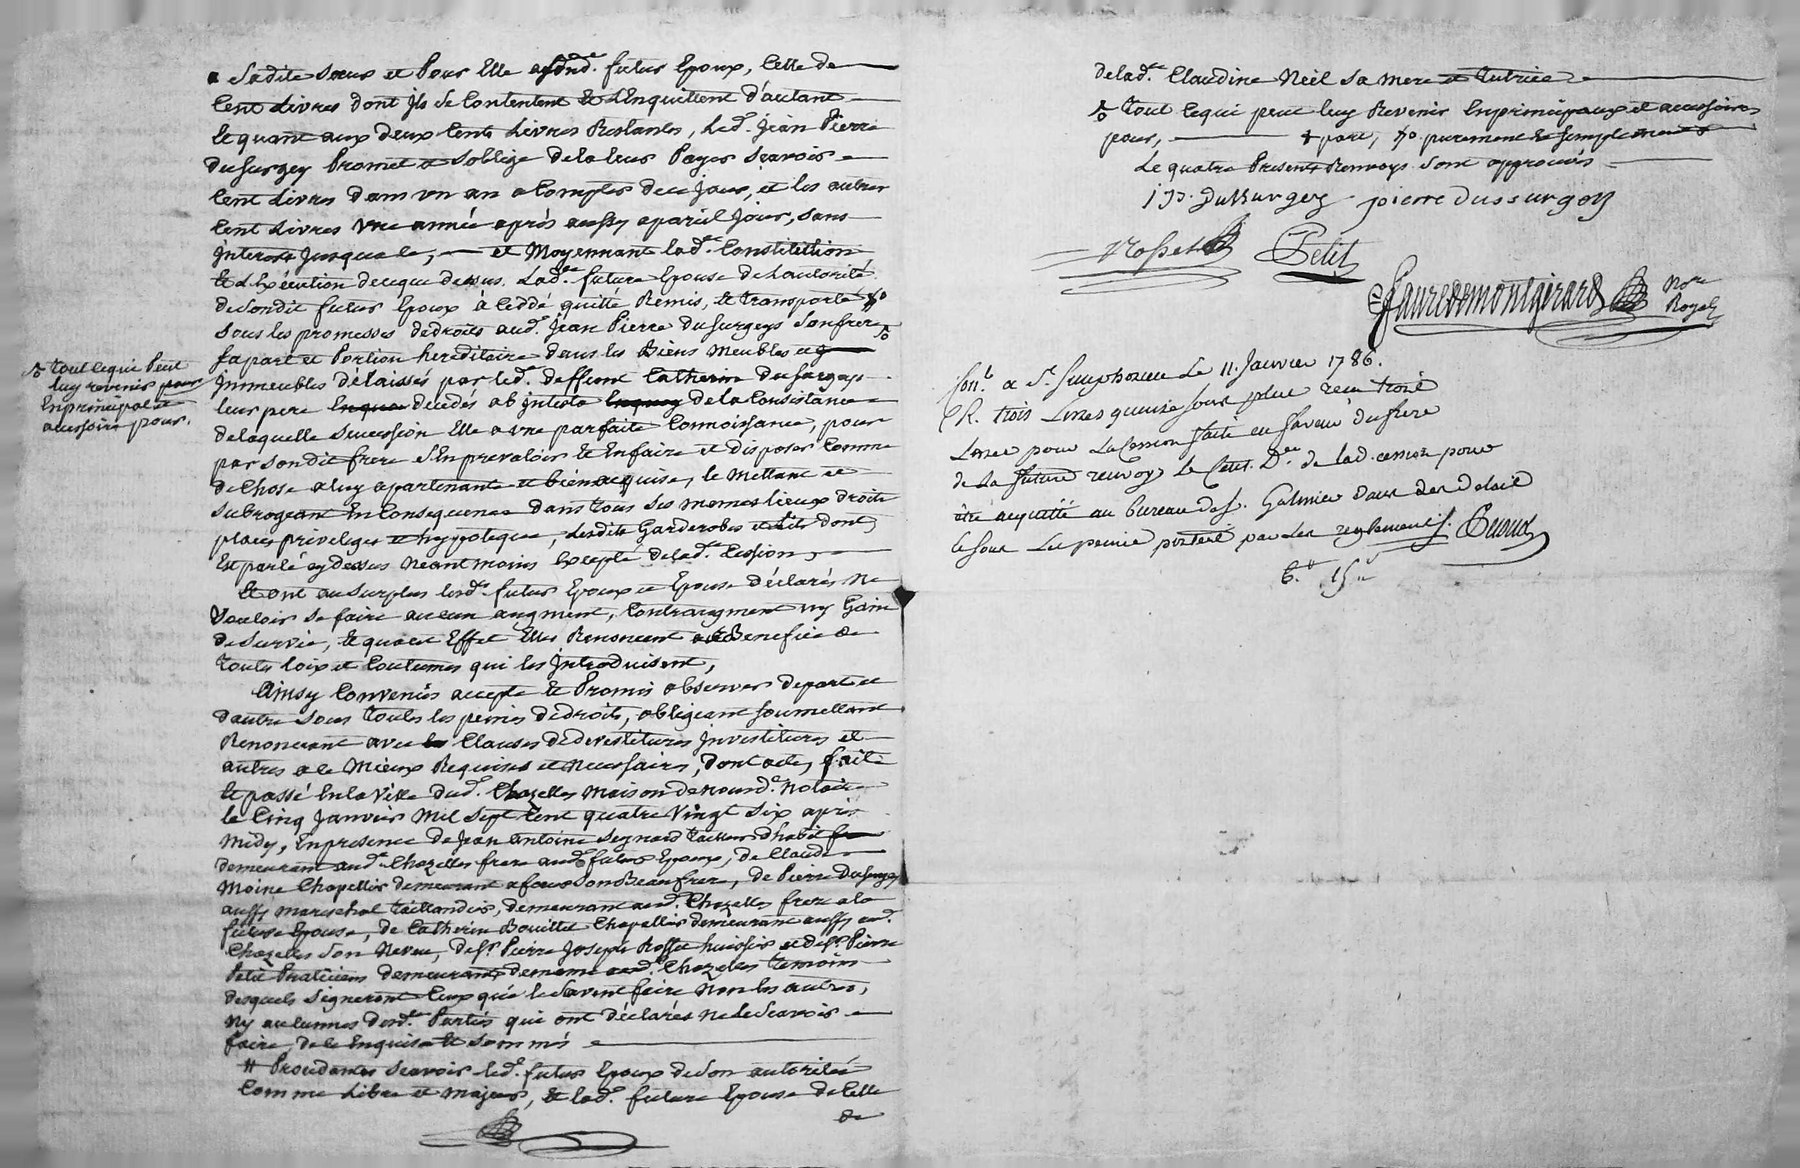 Sadite Soeur et Pour Elle aud. futur Epoux, Celle de
Cent Livres dont ils se Contentent Et L'Enquittent d'autant
Et quant aux deux Cents Livres Restantes, Led. Jean Pierre
Dusurgey Promet et S'oblige de la leur Payer Scavoir
Cent Livres dans un an a Compter de ce jour, et les autres
Cent Livres Une année après aussy a pareil Jour, sans
Interest Jusqu'a le, et Moyennant lad. Constitution
Et L'Exécution de ce que dessus. Lad. future Epouse de L'autorité
de Son dit futur Epoux à Ceddé quitté Remis, Et transporté
Sous les promesses de droits aud. Jean Pierre Dusurgey Son frere
sa part et Portion hereditaire dans les Biens Meubles et
Immeubles délaissés par led. deffunt Catherin Dusurgey
leur pere décédés ab intesta de la Consistance
de laquelle Succession Elle a une parfaite Connoissance, pour
par son dit frere S'En prevaloir Et En faire et disposer Comme
de Chose a luy apartenante et bien acquise, le Mettant et
Subrogeant En Consequence dans tous ses mêmes lieux droits
places privileges et hypoteques, Lesdits Garderobes et Lits dont
Est parlé cy dessus neantmoins Excepté de lad. Cession,
Et ont au surplus lesd. futurs Epoux et Epouse déclarés ne
Vouloir se faire aucun augment, Contraugment ny Gain
de Survie, Et quoi Effet Elles Renoncent au Benefice de
toutes loix et Coutumes qui les Introduisent,
Ainsy Convenüs accepté Et Promis observer de part et
d'autre sous toutes les peines de droits, obligeant soumettant
Renoncant avec Clauses de devestitures Investitures et
autres a le Mieux Requises et Necessaires, Dont acte, fait
Et passé En la Ville dud. Chazelles Maison de nousd. Notaire
le Cinq Janvier Mil Sept Cent quatre Vingt Six après
Midy, En presence de Jean Antoine Seynard tailleur d'habit
demeurant aud. Chazelles frere aud. futur Epoux, de Claude
Moine Chapellier demeurant Son Beau frere, de Pierre Dusurgey
aussy Mareschal taillandier, demeurant aud. Chazelles frere a la
future Epouse, de Catherin Bouillet Chapellier demeurant aussy aud.
Chazelles Son Neveu, de Sr. Pierre Joseph Rosset huissier et de Sr. Pierre
Petit Praticien demeurants de meme aud. Chazelles temoins
desquels Signeront Ceux qui le Scavent faire Non les autres,
Ny aucunnes desd. Parties qui ont déclarés ne le Scavoir
faire, de ce Enquis et Sommés
# Procedants Scavoir led. futur Epoux de Son autorité
Comme Libre et Majeur, Et lad. future Epouse de Celle
de
tout ce qui Peut
luy revenir pour
En principal et
accessoire pour.
de lad. Claudine Néel Sa Mere et Tutrice
tout ce qui peut luy Revenir En principaux et accessoires
pour, + part, purement et simplement
Le quatre Presents Renvoys sont approuvés
J P. Dussurgey pierre dussurgey
Rosset Petit
Fauredemontgirard Nore. Royal
Conl. a St. Simphorien Le 11. Janvier 1786.
R. trois Livres quinze sous plus recu trois
Livres pour La Cession faite en faveur du frere
de La future renvoy Le Cent. D. de lad. cession pour
être acquitté au Bureau de S. Galmier dans Les delais
Sous Les peines portés par Les reglements.
6.lt 15.s